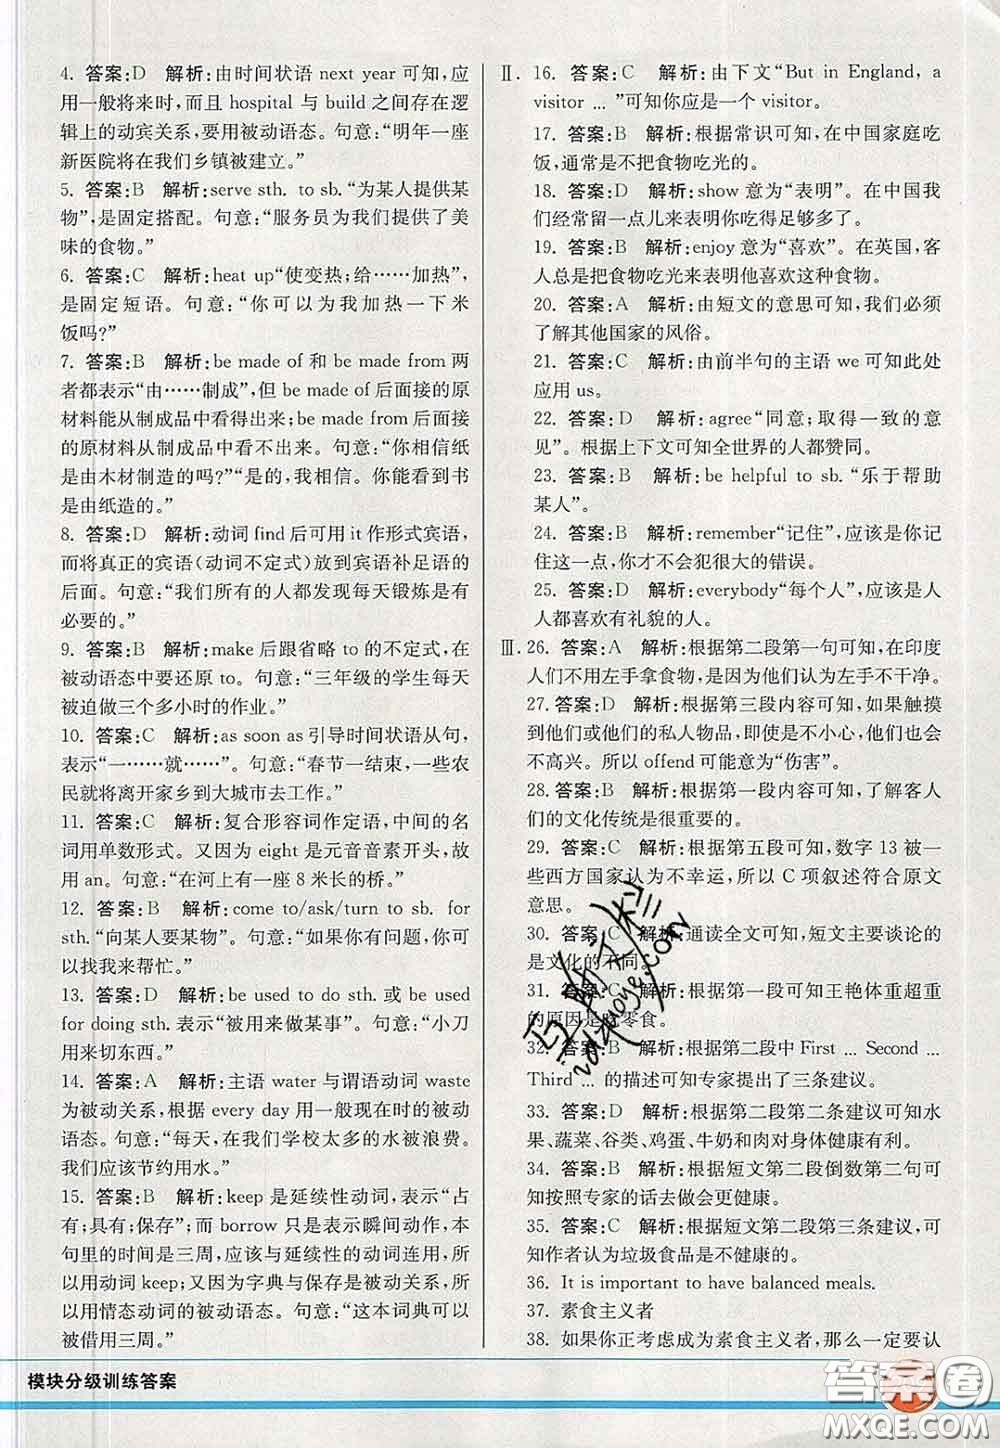 4. 答案:D 解析:由时间状语 next year 可知,应
用一般将来时,而且 hospital 与 build 之间存在逻
辑上的动宾关系,要用被动语态。句意:“明年一座
新医院将在我们乡镇被建立。”
5. 答案:B 解析:serve sth. to sb.“为某人提供某
物”,是固定搭配。句意:“服务员为我们提供了美
味的食物。”
6. 答案:C 解析:heat up“使变热;给……加热”,
是固定短语。句意:“你可以为我加热一下米
饭吗?”
7. 答案:B 解析:be made of 和 be made from 两
者都表示“由……制成”,但 be made of 后面接的原
材料能从制成品中看得出来;be made from 后面接
的原材料从制成品中看不出来。句意:“你相信纸
是由木材制造的吗?”“是的,我相信。你能看到书
是由纸造的。”
8. 答案:D 解析:动词 find 后可用 it 作形式宾语,
而将真正的宾语(动词不定式)放到宾语补足语的
后面。句意:“我们所有的人都发现每天锻炼是有
必要的。”
9. 答案:B 解析:make 后跟省略 to 的不定式,在
被动语态中要还原 to。句意:“三年级的学生每天
被迫做三个多小时的作业。”
10. 答案:C 解析:as soon as 引导时间状语从句,
表示“一……就……”。句意:“春节一结束,一些农
民就将离开家乡到大城市去工作。”
11. 答案:C 解析:复合形容词作定语,中间的名
词用单数形式。又因为 eight 是元音音素开头,故
用 an。句意:“在河上有一座 8 米长的桥。”
12. 答案:B 解析:come to/ask/turn to sb. for
sth.“向某人要某物”。句意:“如果你有问题,你可
以找我来帮忙。”
13. 答案:D 解析:be used to do sth. 或 be used
for doing sth. 表示“被用来做某事”。句意:“小刀
用来切东西。”
14. 答案:A 解析:主语 water 与谓语动词 waste
为被动关系,根据 every day 用一般现在时的被动
语态。句意:“每天,在我们学校太多的水被浪费。
我们应该节约用水。”
15. 答案:B 解析:keep 是延续性动词,表示“占
有;具有;保存”;而 borrow 只是表示瞬间动作,本
句里的时间是三周,应该与延续性的动词连用,所
以用动词 keep;又因为字典与保存是被动关系,所
以用情态动词的被动语态。句意:“这本词典可以
被借用三周。”
Ⅱ. 16. 答案:C 解析:由下文“But in England, a
visitor …”可知你应是一个 visitor。
17. 答案:B 解析:根据常识可知,在中国家庭吃
饭,通常是不把食物吃光的。
18. 答案:D 解析:show 意为“表明”。在中国我
们经常留一点儿来表明你吃得足够多了。
19. 答案:B 解析:enjoy 意为“喜欢”。在英国,客
人总是把食物吃光来表明他喜欢这种食物。
20. 答案:A 解析:由短文的意思可知,我们必须
了解其他国家的风俗。
21. 答案:C 解析:由前半句的主语 we 可知此处
应用 us。
22. 答案:D 解析:agree“同意;取得一致的意
见”。根据上下文可知全世界的人都赞同。
23. 答案:B 解析:be helpful to sb.“乐于帮助
某人”。
24. 答案:B 解析:remember“记住”,应该是你记
住这一点,你才不会犯很大的错误。
25. 答案:D 解析:everybody“每个人”,应该是人
人都喜欢有礼貌的人。
Ⅲ. 26. 答案:A 解析:根据第二段第一句可知,在印度
人们不用左手拿食物,是因为他们认为左手不干净。
27. 答案:D 解析:根据第三段内容可知,如果触摸
到他们或他们的私人物品,即使是不小心,他们也会
不高兴。所以 offend 可能意为“伤害”。
28. 答案:B 解析:根据第一段内容可知,了解客人
们的文化传统是很重要的。
29. 答案:C 解析:根据第五段可知,数字 13 被一
些西方国家认为不幸运,所以 C 项叙述符合原文
意思。
30. 答案:C 解析:通读全文可知,短文主要谈论的
是文化的不同。
31. 答案:C 解析:根据第一段可知王艳体重超重
的原因是吃零食。
32. 答案:B 解析:根据第二段中 First … Second …
Third … 的描述可知专家提出了三条建议。
33. 答案:D 解析:根据第二段第二条建议可知水
果、蔬菜、谷类、鸡蛋、牛奶和肉对身体健康有利。
34. 答案:A 解析:根据短文第二段倒数第二句可
知按照专家的话去做会更健康。
35. 答案:C 解析:根据短文第二段第三条建议,可
知作者认为垃圾食品是不健康的。
36. It is important to have balanced meals.
37. 素食主义者
38. 如果你正考虑成为素食主义者,那么一定要认
模块分级训练答案
答案圈
MXQE.COM